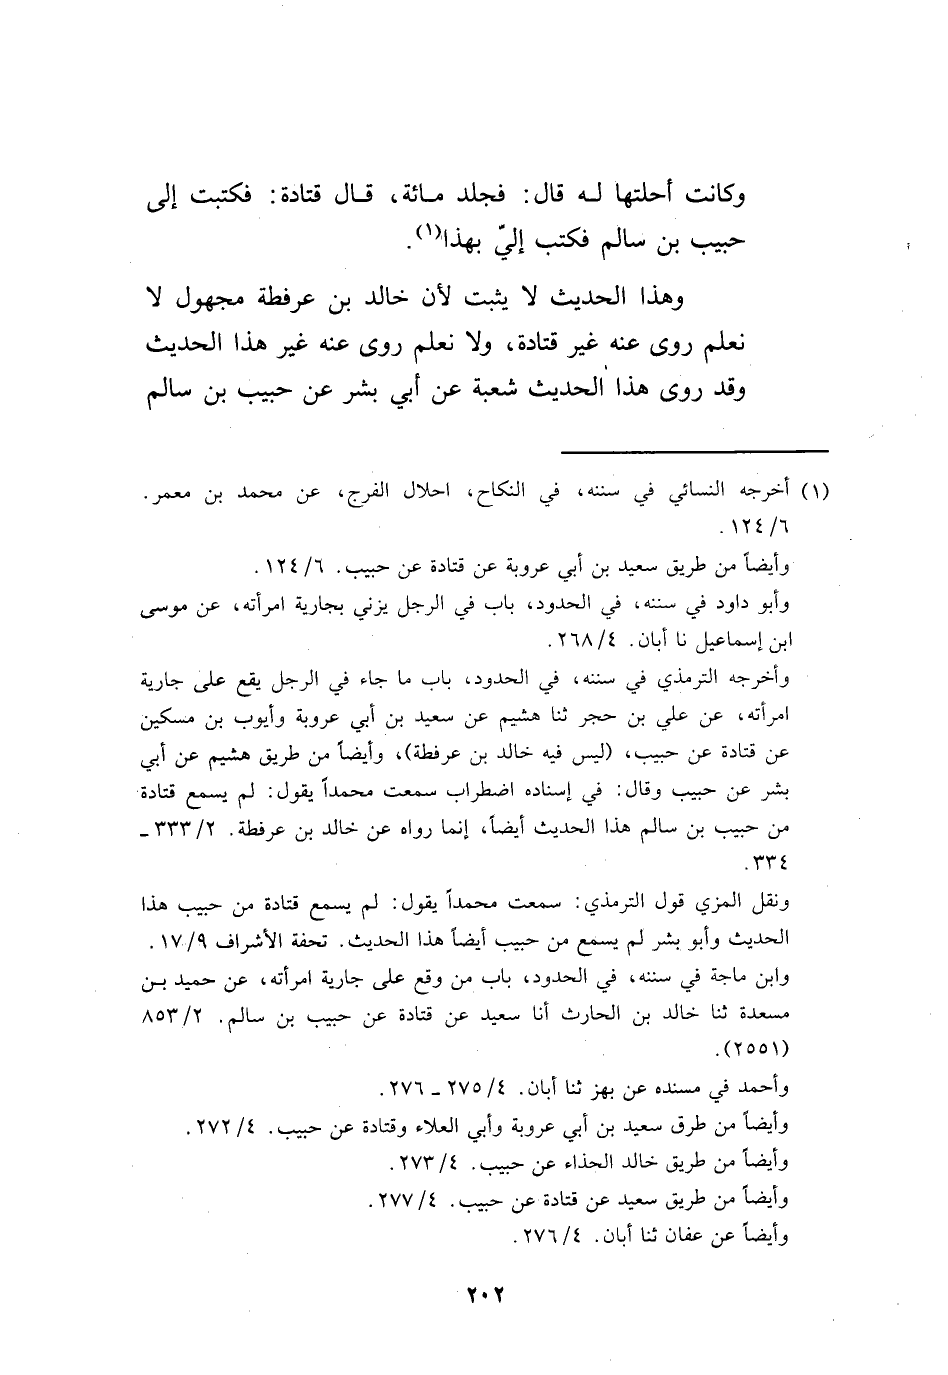 وكانت أحلتها لـه قال: فجلد مـائة، قـال قتادة: فكتبت إلى
حبيب بن سالم فكتب إليّ بهذا(١).
وهذا الحديث لا يثبت لأن خالد بن عرفطة مجهول لا
نعلم روى عنه غير قتادة، ولا نعلم روى عنه غير هذا الحديث
وقد روى هذا الحديث شعبة عن أبي بشر عن حبيب بن سالم
(١) أخرجه النسائي في سننه، في النكاح، احلال الفرج، عن محمد بن معمر.
٦/ ١٢٤ .
وأيضاً من طريق سعيد بن أبي عروبة عن قتادة عن حبيب. ٦/ ١٢٤ .
وأبو داود في سننه، في الحدود، باب في الرجل يزني بجارية امرأته، عن موسى
ابن إسماعيل نا أبان. ٤/ ٢٦٨ .
وأخرجه الترمذي في سننه، في الحدود، باب ما جاء في الرجل يقع على جارية
امرأته، عن علي بن حجر ثنا هشيم عن سعيد بن أبي عروبة وأيوب بن مسكين
عن قتادة عن حبيب، (ليس فيه خالد بن عرفطة)، وأيضاً من طريق هشيم عن أبي
بشر عن حبيب وقال: في إسناده اضطراب سمعت محمداً يقول: لم يسمع قتادة
من حبيب بن سالم هذا الحديث أيضاً، إنما رواه عن خالد بن عرفطة. ٢/ ٣٣٣ ـ
٣٣٤ .
ونقل المزي قول الترمذي: سمعت محمداً يقول: لم يسمع قتادة من حبيب هذا
الحديث وأبو بشر لم يسمع من حبيب أيضاً هذا الحديث. تحفة الأشراف ٩/ ١٧ .
وابن ماجة في سننه، في الحدود، باب من وقع على جارية امرأته، عن حميد بـن
مسعدة ثنا خالد بن الحارث أنا سعيد عن قتادة عن حبيب بن سالم. ٢/ ٨٥٣
(٢٥٥١).
وأحمد في مسنده عن بهز ثنا أبان. ٤/ ٢٧٥ ـ ٢٧٦ .
وأيضاً من طرق سعيد بن أبي عروبة وأبي العلاء وقتادة عن حبيب. ٤/ ٢٧٢ .
وأيضاً من طريق خالد الحذاء عن حبيب. ٤/ ٢٧٣ .
وأيضاً من طريق سعيد عن قتادة عن حبيب. ٤/ ٢٧٧ .
وأيضاً عن عفان ثنا أبان. ٤/ ٢٧٦ .
٢٠٢